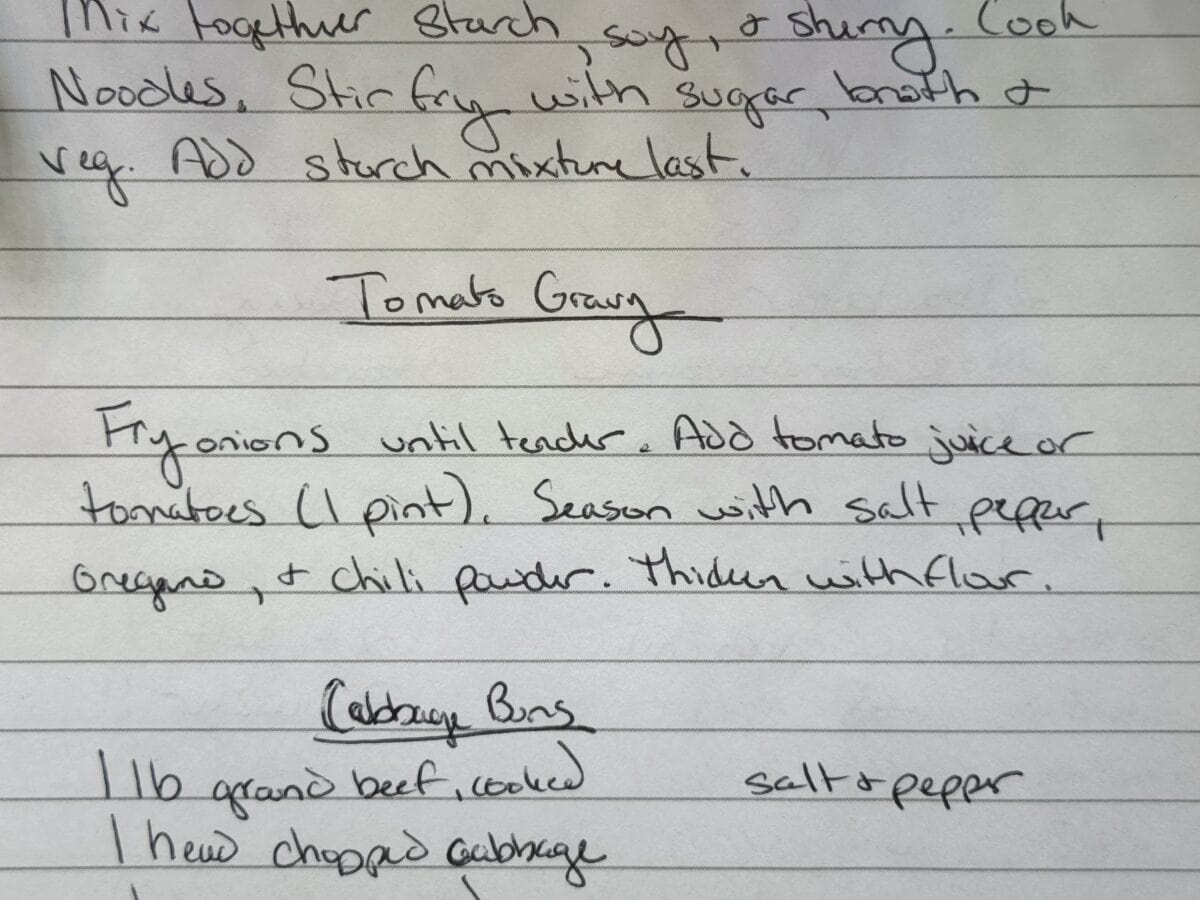 Mix together starch, soy, & sherry. Cook
Noodles. Stir fry with sugar, broth &
veg. Add starch mixture last.
Tomato Gravy
Fry onions until tender. Add tomato juice or
tomatoes (1 pint). Season with salt, pepper,
oregano, & chili powder. Thicken with flour.
Cabbage Buns
1 lb ground beef, cooked salt & pepper
1 head chopped cabbage